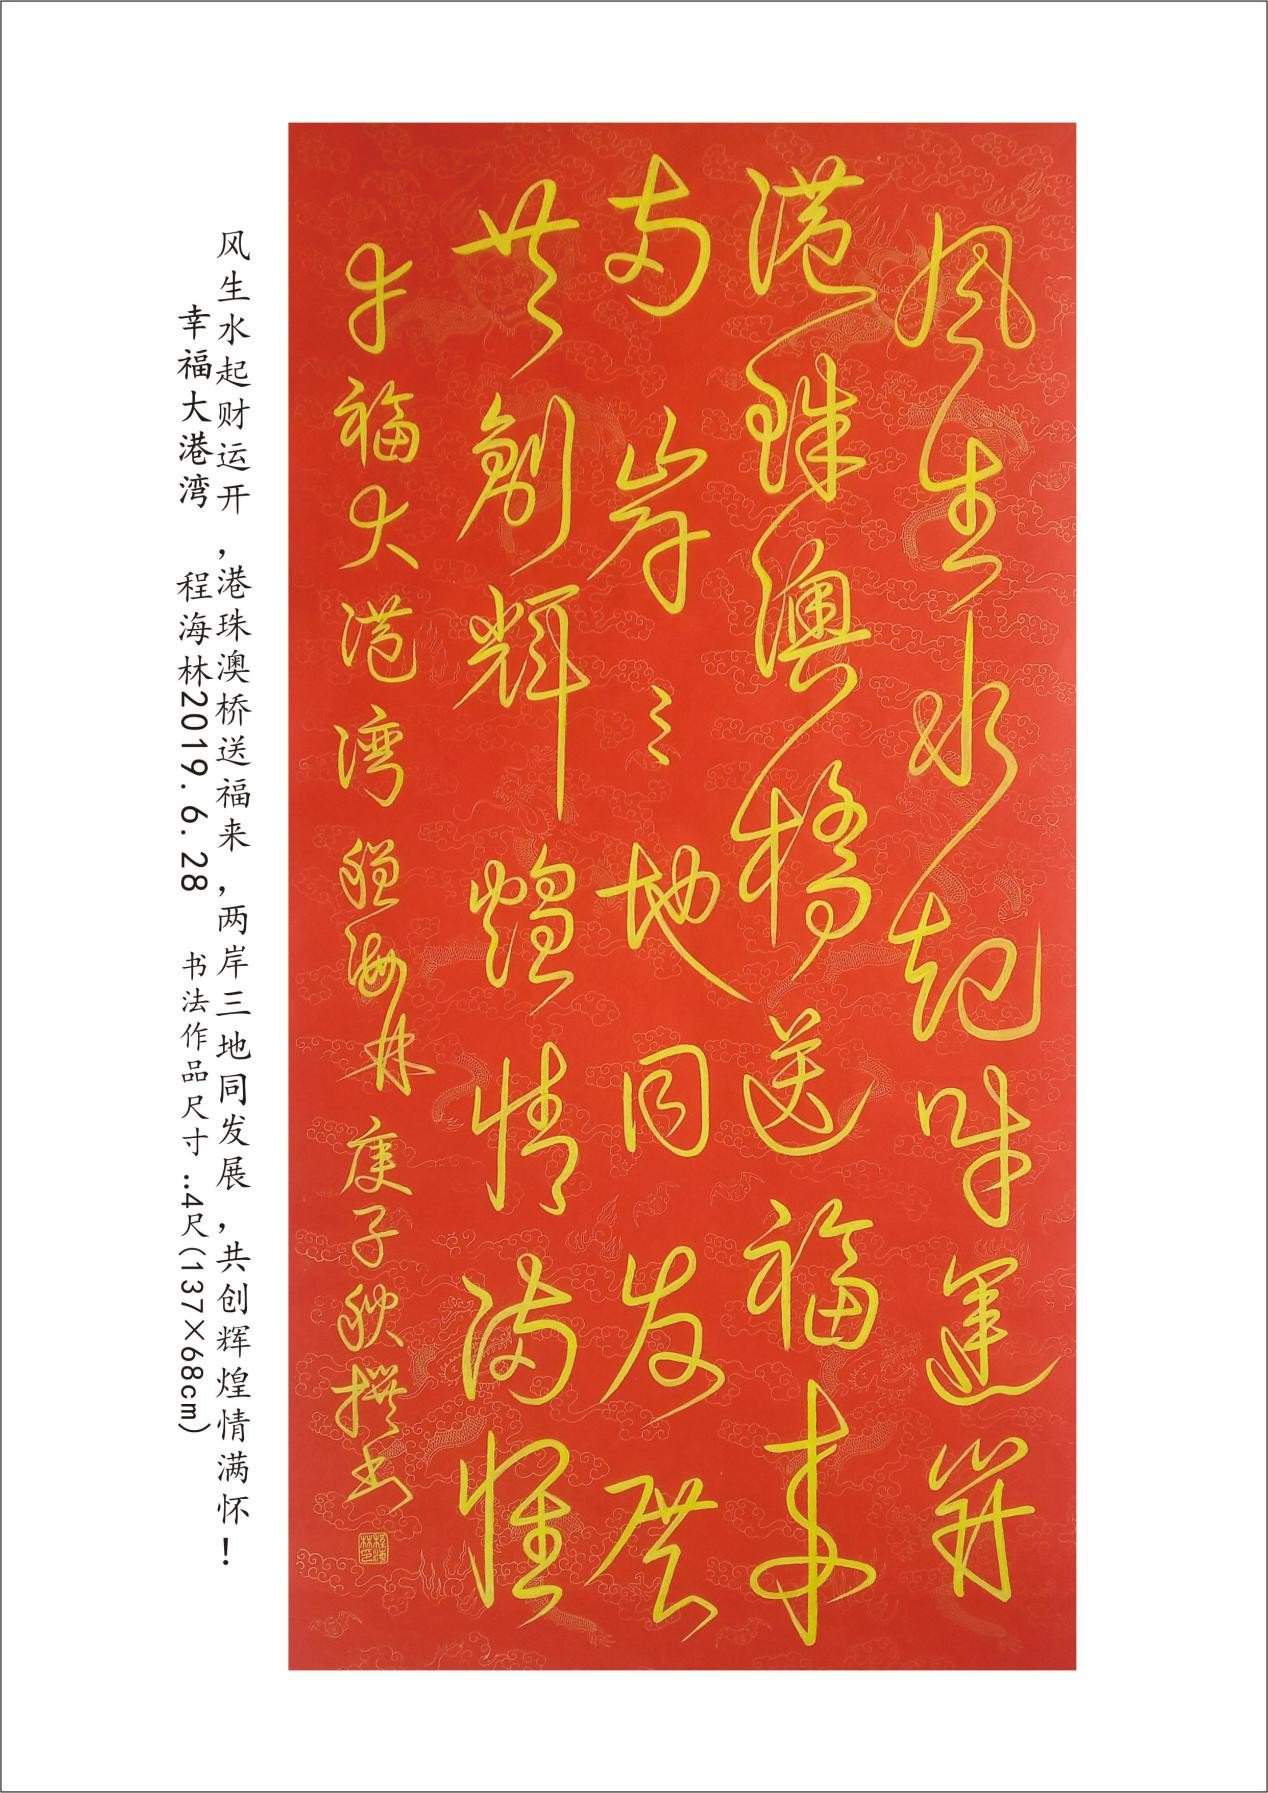 風生水起財運開
港珠澳橋送福來
両岸三地同发展
共創輝煌情满懷
幸福大港湾 程海林 庚子秋撰书
程海林印
风生水起财运开,港珠澳桥送福来,两岸三地同发展,共创辉煌情满怀!
幸福大港湾 程海林2019.6.28 书法作品尺寸..4尺(137×68cm)